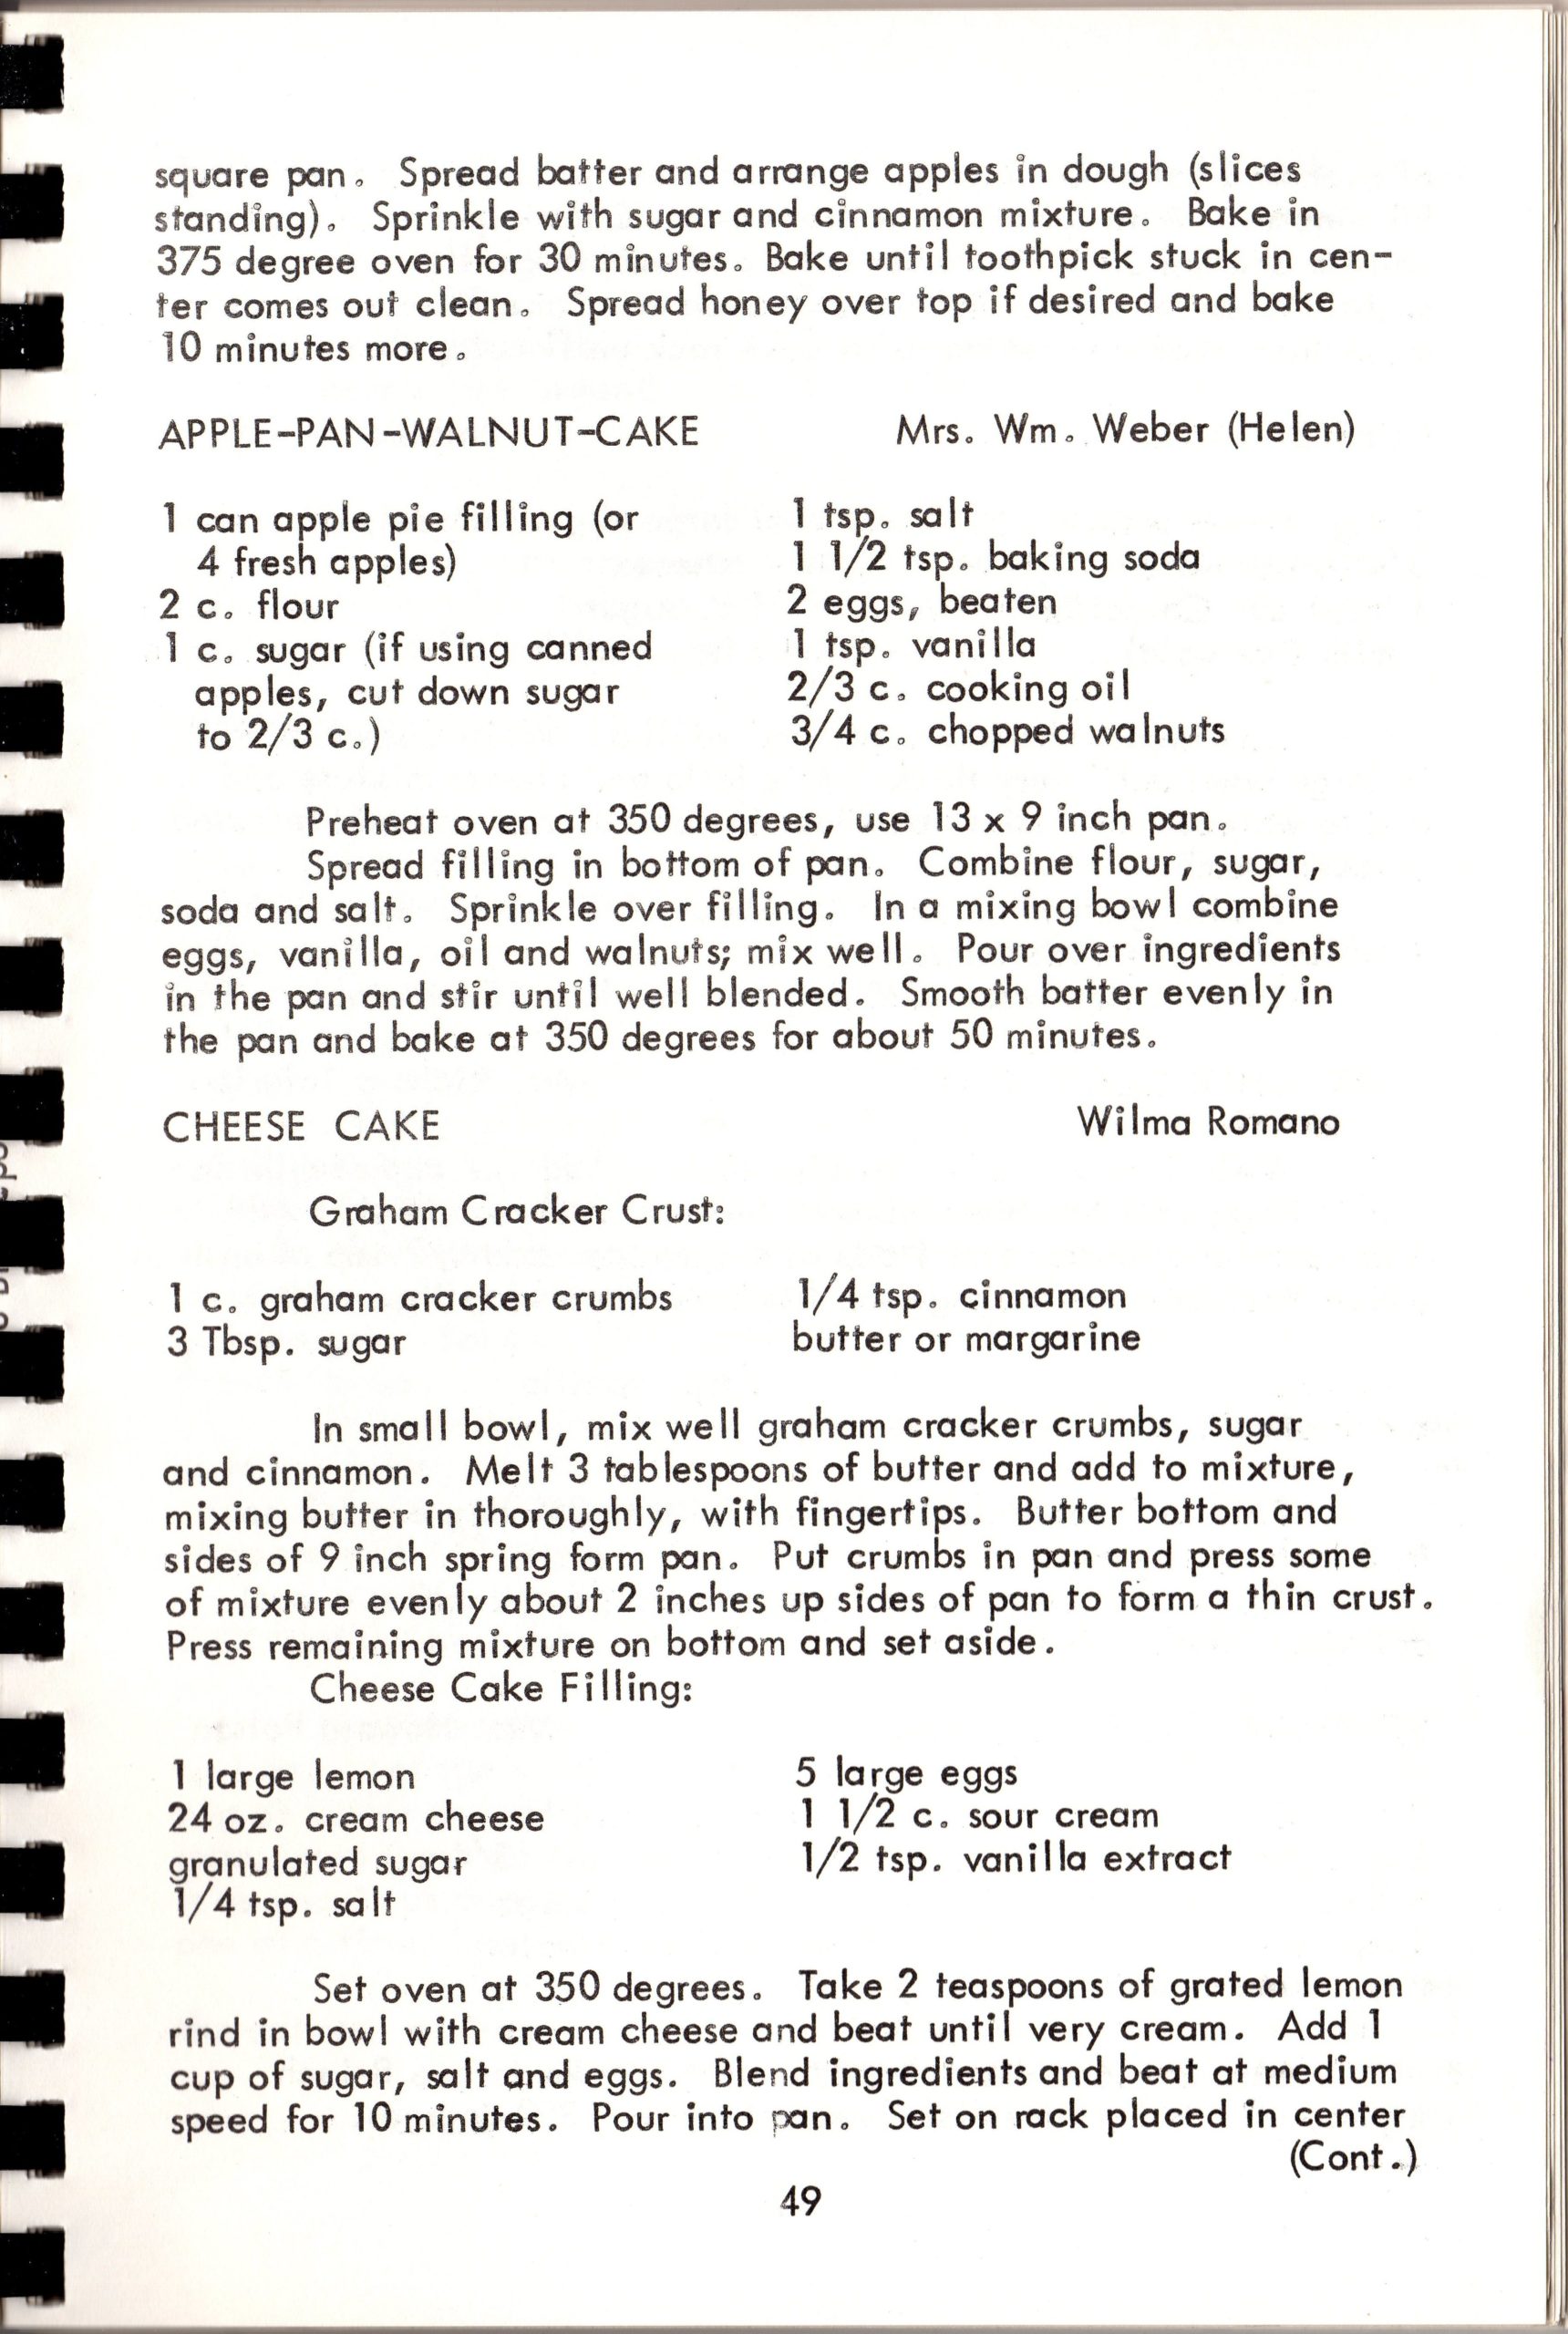 square pan. Spread batter and arrange apples in dough (slices
standing). Sprinkle with sugar and cinnamon mixture. Bake in
375 degree oven for 30 minutes. Bake until toothpick stuck in cen-
ter comes out clean. Spread honey over top if desired and bake
10 minutes more.
APPLE-PAN-WALNUT-CAKE Mrs. Wm. Weber (Helen)
1 can apple pie filling (or
4 fresh apples)
2 c. flour
1 c. sugar (if using canned
apples, cut down sugar
to 2/3 c.)
1 tsp. salt
1 1/2 tsp. baking soda
2 eggs, beaten
1 tsp. vanilla
2/3 c. cooking oil
3/4 c. chopped walnuts
Preheat oven at 350 degrees, use 13 x 9 inch pan.
Spread filling in bottom of pan. Combine flour, sugar,
soda and salt. Sprinkle over filling. In a mixing bowl combine
eggs, vanilla, oil and walnuts; mix well. Pour over ingredients
in the pan and stir until well blended. Smooth batter evenly in
the pan and bake at 350 degrees for about 50 minutes.
CHEESE CAKE Wilma Romano
Graham Cracker Crust:
1 c. graham cracker crumbs
3 Tbsp. sugar
1/4 tsp. cinnamon
butter or margarine
In small bowl, mix well graham cracker crumbs, sugar
and cinnamon. Melt 3 tablespoons of butter and add to mixture,
mixing butter in thoroughly, with fingertips. Butter bottom and
sides of 9 inch spring form pan. Put crumbs in pan and press some
of mixture evenly about 2 inches up sides of pan to form a thin crust.
Press remaining mixture on bottom and set aside.
Cheese Cake Filling:
1 large lemon
24 oz. cream cheese
granulated sugar
1/4 tsp. salt
5 large eggs
1 1/2 c. sour cream
1/2 tsp. vanilla extract
Set oven at 350 degrees. Take 2 teaspoons of grated lemon
rind in bowl with cream cheese and beat until very cream. Add 1
cup of sugar, salt and eggs. Blend ingredients and beat at medium
speed for 10 minutes. Pour into pan. Set on rack placed in center
(Cont.)
49